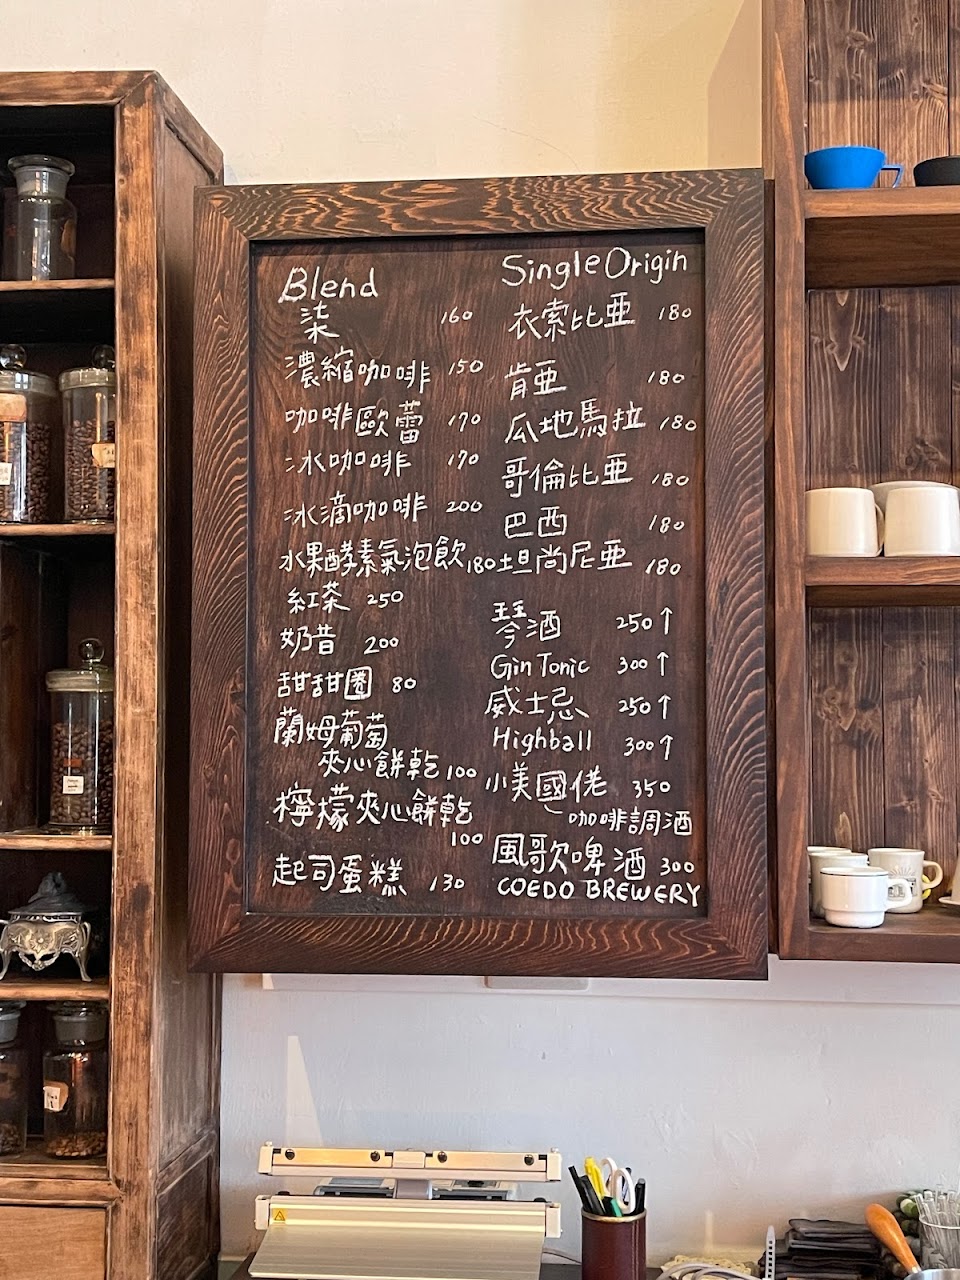 Blend
柒 160
濃縮咖啡 150
咖啡歐蕾 170
冰咖啡 170
冰滴咖啡 200
水果酵素氣泡飲 180
紅茶 250
奶昔 200
甜甜圈 80
蘭姆葡萄
夾心餅乾 100
檸檬夾心餅乾
100
起司蛋糕 130
Single Origin
衣索比亞 180
肯亞 180
瓜地馬拉 180
哥倫比亞 180
巴西 180
坦尚尼亞 180
琴酒 250↑
Gin Tonic 300↑
威士忌 250↑
Highball 300↑
小美國佬 350
咖啡調酒
風歌啤酒 300
COEDO BREWERY